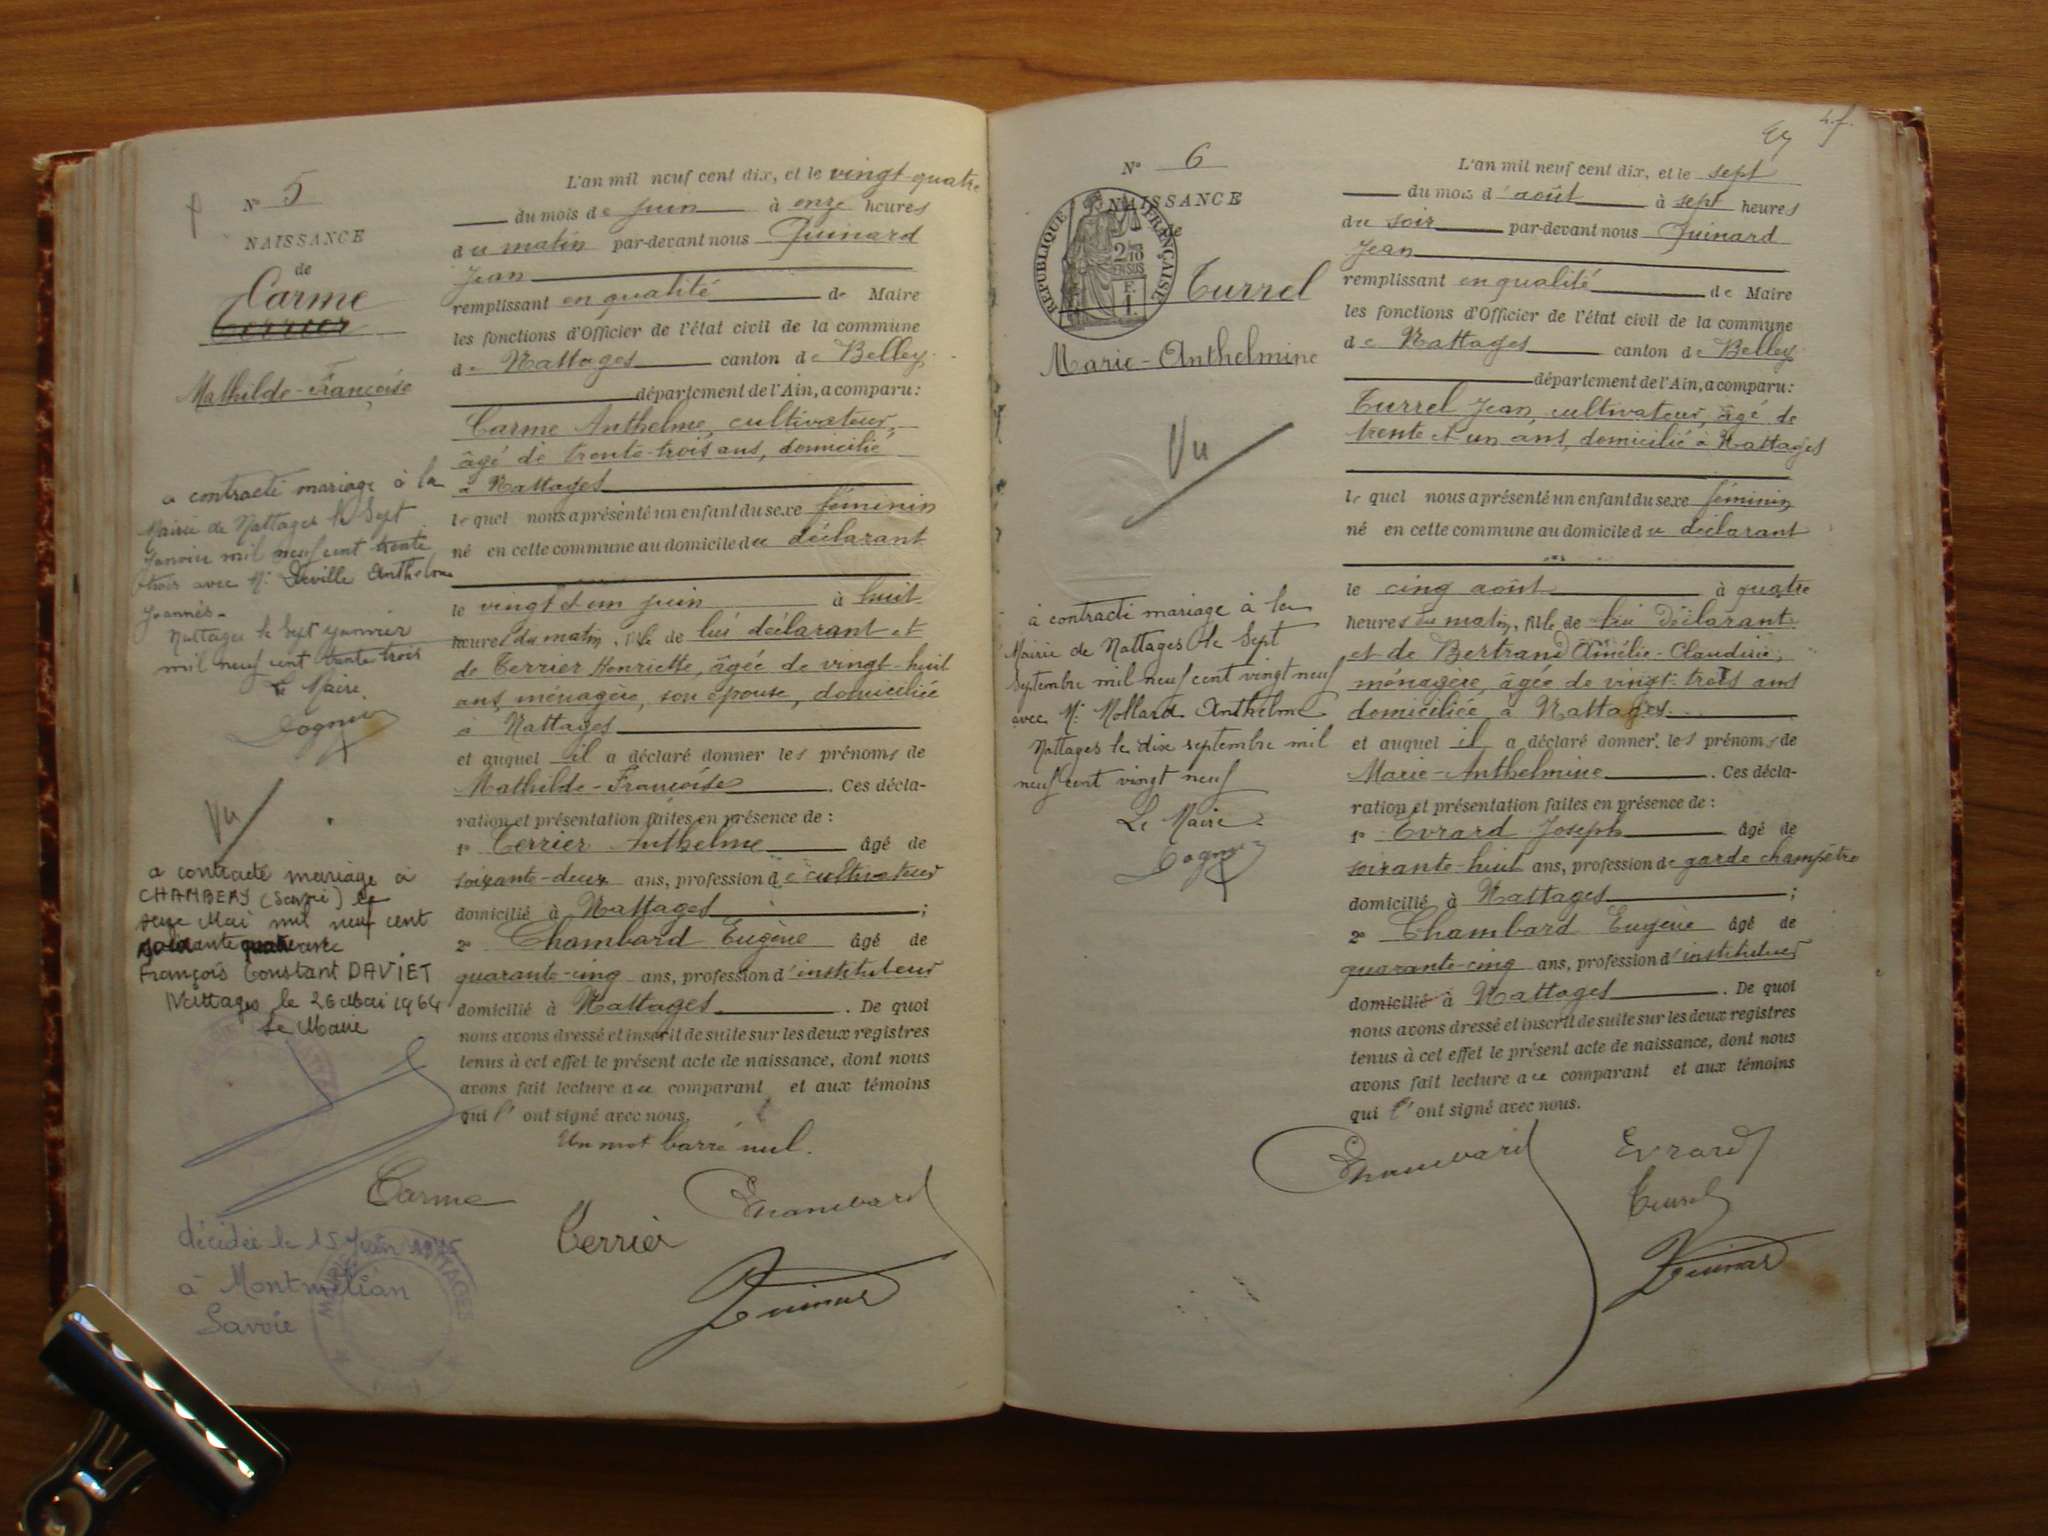 N° 5
NAISSANCE
de
Carme
Terrier
Mathilde-Françoise
a contracté mariage à la
Mairie de Nattages le Sept
Janvier mil neuf cent trente
trois avec Mr Deville Anthelme
Joannès-
Nattages le Sept janvier
mil neuf cent trente trois
Le Maire
Vu
a contracté mariage à
CHAMBERY (Savoie) le
seize Mai mil neuf cent
soixante quatre avec
François Constant DAVIET
Nattages le 26 Mai 1964
Le Maire
décédée le 15 Juin
à Montmélian
Savoie
L'an mil neuf cent dix, et le vingt-quatre
du mois de juin à onze heures
du matin par-devant nous Guinard
Jean
remplissant en qualité de Maire
les fonctions d'Officier de l'état civil de la commune
de Nattages canton de Belley
département de l'Ain, a comparu:
Carme Anthelme, cultivateur,
âgé de trente-trois ans, domicilié
à Nattages
lequel nous a présenté un enfant du sexe féminin
né en cette commune au domicile du déclarant
le vingt et un juin à huit
heures du matin, fille de lui déclarant et
de Terrier Henriette, âgée de vingt-huit
ans, ménagère, son épouse, domiciliée
à Nattages
et auquel il a déclaré donner les prénoms de
Mathilde-Françoise. Ces décla-
ration et présentation faites en présence de:
1° Terrier Anthelme âgé de
soixante-deux ans, profession de cultivateur
domicilié à Nattages;
2° Chambard Eugène âgé de
quarante-cinq ans, profession d'instituteur
domicilié à Nattages. De quoi
nous avons dressé et inscrit de suite sur les deux registres
tenus à cet effet le présent acte de naissance, dont nous
avons fait lecture au comparant et aux témoins
qui l'ont signé avec nous.
Un mot barré nul.
Carme
Chambard
Terrier
Guinard
N° 6
NAISSANCE
de
RÉPUBLIQUE FRANÇAISE
2/10 EN SUS
F. 1.
Turrel
Marie-Anthelmine
Vu
a contracté mariage à la
Mairie de Nattages le Sept
Septembre mil neuf cent vingt neuf
avec Mr Mollard Anthelme
Nattages le dix septembre mil
neuf cent vingt neuf
Le Maire
L'an mil neuf cent dix, et le sept
du mois d'août à sept heures
du soir par-devant nous Guinard
Jean
remplissant en qualité de Maire
les fonctions d'Officier de l'état civil de la commune
de Nattages canton de Belley
département de l'Ain, a comparu:
Turrel Jean, cultivateur, âgé de
trente et un ans, domicilié à Nattages
lequel nous a présenté un enfant du sexe féminin
né en cette commune au domicile du déclarant
le cinq août à quatre
heures du matin, fille de lui déclarant
et de Bertrand Amélie-Claudine,
ménagère, âgée de vingt-trois ans
domiciliée à Nattages
et auquel il a déclaré donner les prénoms de
Marie-Anthelmine. Ces décla-
ration et présentation faites en présence de:
1° Evrard Joseph âgé de
soixante-huit ans, profession de garde champêtre
domicilié à Nattages;
2° Chambard Eugène âgé de
quarante-cinq ans, profession d'instituteur
domicilié à Nattages. De quoi
nous avons dressé et inscrit de suite sur les deux registres
tenus à cet effet le présent acte de naissance, dont nous
avons fait lecture au comparant et aux témoins
qui l'ont signé avec nous.
Chambard
Evrard
Turrel
Guinard